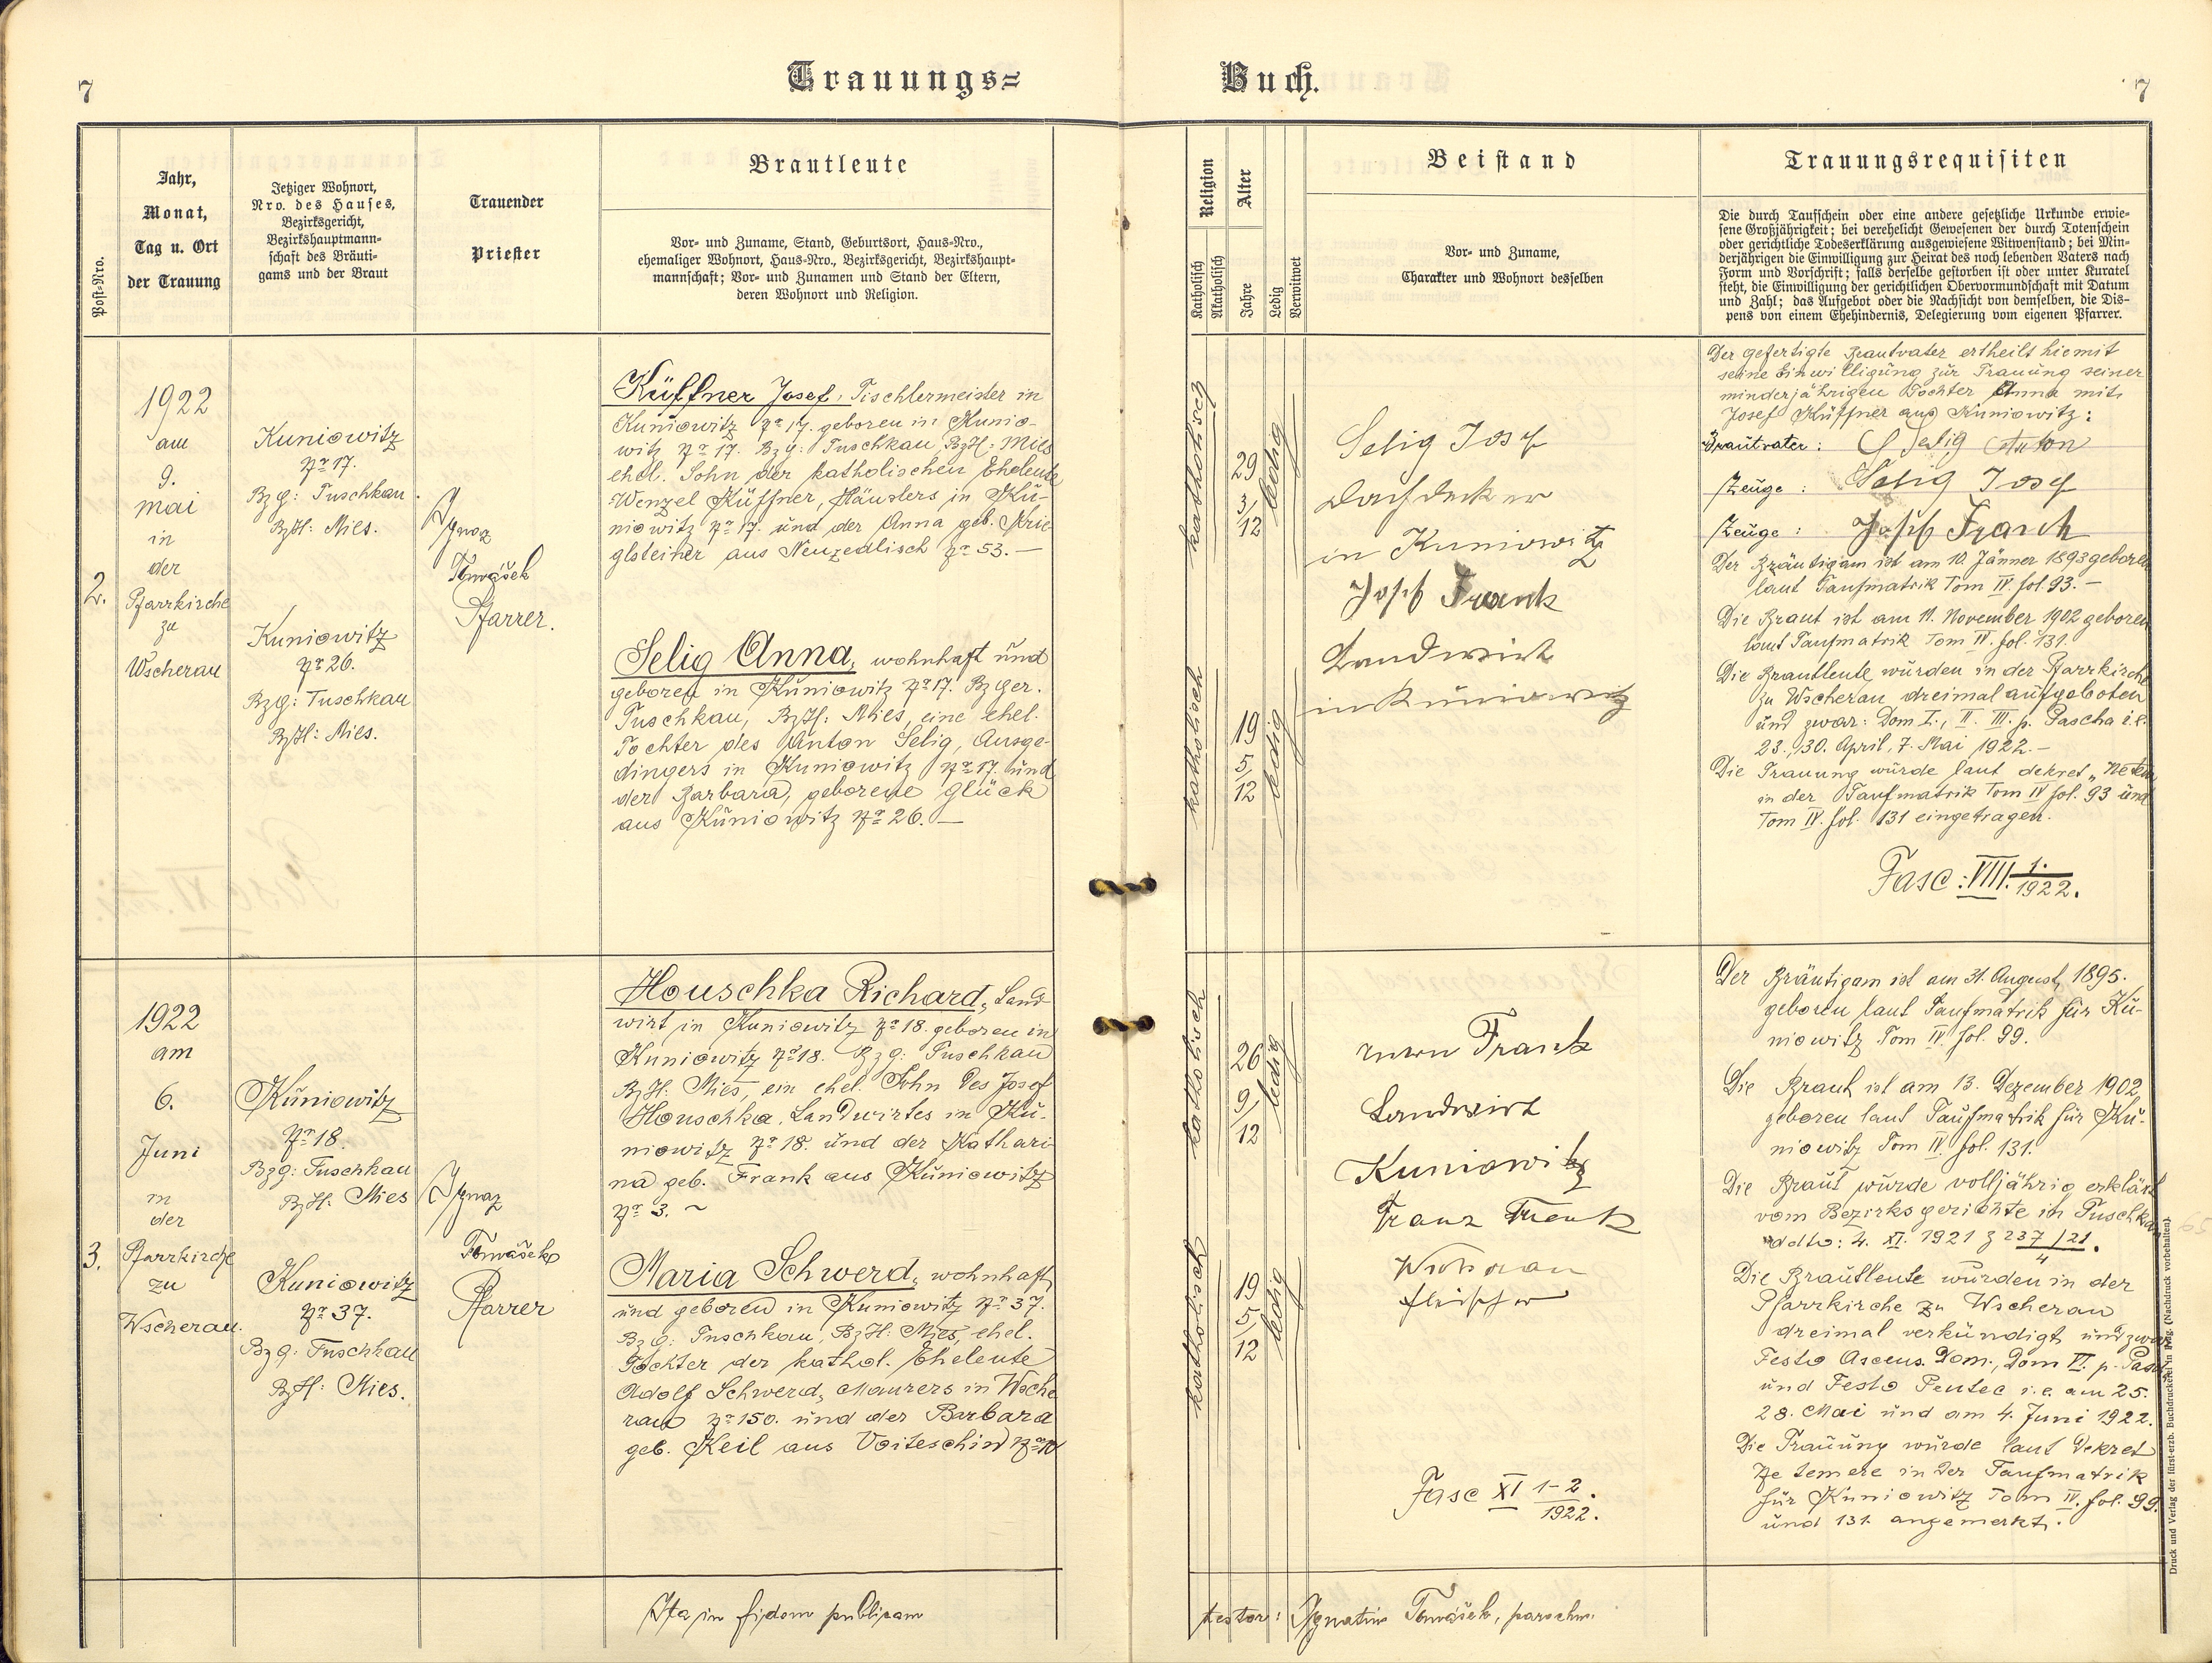 7
Trauungs-
Buch.
7
Post-Nro.
Jahr,
Monat,
Tag u. Ort
der Trauung
Jetziger Wohnort,
Nro. des Hauses,
Bezirksgericht,
Bezirkshauptmann-
schaft des Bräuti-
gams und der Braut
Trauender
Priester
Brautleute
Vor- und Zuname, Stand, Geburtsort, Haus-Nro.,
ehemaliger Wohnort, Haus-Nro., Bezirksgericht, Bezirkshaupt-
mannschaft; Vor- und Zunamen und Stand der Eltern,
deren Wohnort und Religion.
Religion
Katholisch
Akatholisch
Alter
Jahre
Ledig
Verwitwet
Beistand
Vor- und Zuname,
Charakter und Wohnort desselben
Trauungsrequisiten
Die durch Taufschein oder eine andere gesetzliche Urkunde erwie-
sene Großjährigkeit; bei verehelicht Gewesenen der durch Totenschein
oder gerichtliche Todeserklärung ausgewiesene Witwenstand; bei Min-
derjährigen die Einwilligung zur Heirat des noch lebenden Vaters nach
Form und Vorschrift; falls derselbe gestorben ist oder unter Kuratel
steht, die Einwilligung der gerichtlichen Obervormundschaft mit Datum
und Zahl; das Aufgebot oder die Nachsicht von demselben, die Dis-
pens von einem Ehehindernis, Delegierung vom eigenen Pfarrer.
2.
1922
am
9.
mai
in
der
Pfarrkirche
zu
Wscherau
Kuniowitz
No 17.
Bzg: Tuschkau.
BzH: Mies.
Kuniowitz
No 26.
Bzg: Tuschkau
BzH: Mies.
Ignaz
Tomášek
Pfarrer.
Küffner Josef, Tischlermeister in
Kuniowitz No 17. geboren in Kunio-
witz No 17. Bzg: Tuschkau, BzH: Mies
ehel. Sohn der katholischen Eheleute
Wenzel Küffner, Häuslers in Ku-
niowitz No 17. und der Anna geb. Krie-
glsteiner aus Neuzedlisch No 53. —
Selig Anna, wohnhaft und
geboren in Kuniowitz No 17. Bzger.
Tuschkau, BzH: Mies, eine ehel.
Tochter des Anton Selig, Ausge-
dingers in Kuniowitz No 17. und
der Barbara, geborene Glück
aus Kuniowitz No 26. —
katholisch
29
3/
12
ledig
katholisch
19
5/
12
ledig
Selig Josef
Dachdecker
in Kuniowitz
Josef Frank
Landwirt
in Kuniowitz
Der gefertigte Brautvater ertheilt hiemit
seine Einwilligung zur Trauung seiner
minderjährigen Tochter Anna mit
Josef Küffner aus Kuniowitz:
Brautvater: Selig Anton
Zeuge: Selig Josef
Zeuge: Josef Frank
Der Bräutigam ist am 10. Jänner 1893 geboren
laut Taufmatrik Tom IV. fol. 93. —
Die Braut ist am 11. November 1902 geboren
laut Taufmatrik Tom IV. fol. 131.
Die Brautleute wurden in der Pfarrkirche
zu Wscherau dreimal aufgeboten
und zwar: Dom I., II. III. p. Pascha i.e.
23., 30. April, 7. Mai 1922. —
Die Trauung wurde laut dekret „Ne tem
in der Taufmatrik Tom IV fol. 93 und
Tom IV. fol. 131 eingetragen.
Fasc: VIII. 1./1922.
3.
1922
am
6.
Juni
in
der
Pfarrkirche
zu
Wscherau.
Kuniowitz
No 18.
Bzg: Tuschkau
BzH: Mies
Kuniowitz
No 37.
Bzg: Tuschkau
BzH: Mies.
Ignaz
Tomášek
Pfarrer
Houschka Richard, Land-
wirt in Kuniowitz No 18. geboren in
Kuniowitz No 18. Bzg: Tuschkau
BzH: Mies, ein ehel. Sohn des Josef
Houschka, Landwirtes in Ku-
niowitz No 18. und der Kathari-
na geb. Frank aus Kuniowitz
No 3. ~
Maria Schwerd, wohnhaft
und geboren in Kuniowitz No 37.
Bzg: Tuschkau, BzH: Mies, ehel.
Tochter der kathol. Eheleute
Adolf Schwerd, Maurers in Wsche
rau No 150. und der Barbara
geb. Keil aus Voiteschin No 10
katholisch
26
9/
12
ledig
katholisch
19
5/
12
ledig
Frank
Landwirt
Kuniowitz
Franz
fleischer
Fasc XI 1-2/1922.
Der Bräutigam ist am 31. August, 1895.
geboren laut Taufmatrik für Ku-
niowitz Tom IV. fol. 99.
Die Braut ist am 13. Dezember 1902,
geboren laut Taufmatrik für Ku-
niowitz Tom IV. fol. 131.
Die Braut wurde volljährig erklärt
vom Bezirksgerichte in Tuschkau
ddto: 4. XI. 1921 z 237/21./4
Die Brautleute wurden in der
Pfarrkirche zu Wscherau
dreimal verkündigt und zwar
Festo Ascens. Dom., Dom VI. p. Pasc
und Festo Pentec i.e. am 25.
28. Mai und am 4. Juni 1922.
Die Trauung wurde laut Dekret
Ne temere in der Taufmatrik
für Kuniowitz Tom IV. fol. 99.
und 131. angemerkt.
Ita in fidem publicam
testor: Ignatius Tomášek, parochus.
Druck und Verlag der fürst-erzb. Buchdruckerei in Prag. (Nachdruck vorbehalten).